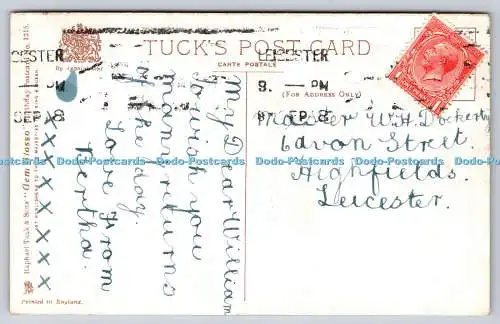 TUCK'S POST CARD
CARTE POSTALE
(FOR ADDRESS ONLY.)
LEICESTER
8. PM
SEP 8
CESTER
PM
SEP 8
My Dear William
I wish you
many returns
of the day.
Love from
Bertha.
X X X X X X X X X
Master W. H. Dockerty
6 Avon Street.
Highfields.
Leicester.
Raphael Tuck & Sons' "Gem Basso" Birthday Postcard No. 1315.
Printed in England.
Dodo-Postcards Dodo-Postcards Dodo-Postcards Dodo-Postcards